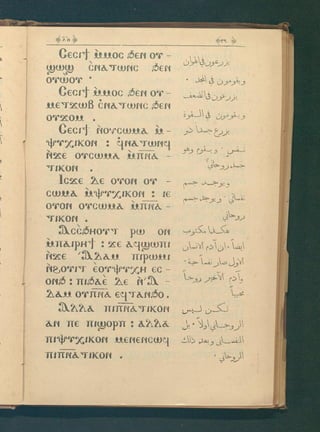 Ⲥⲉⲥⲓϯ ⲙ̀ⲙⲟⲥ ϧⲉⲛ ⲟⲩ-
ϣⲱϣ ⲥ̀ⲛⲁⲧⲱⲛⲥ ϧⲉⲛ
ⲟⲩⲱⲟⲩ ·
Ⲥⲉⲥⲓϯ ⲙ̀ⲙⲟⲥ ϧⲉⲛ ⲟⲩ-
ⲙⲉⲧϫⲱⲃ ⲥ̀ⲛⲁⲧⲱⲛⲥ ϧⲉⲛ
ⲟⲩϫⲟⲙ .
Ⲥⲉⲥⲓϯ ⲛ̀ⲟⲩⲥⲱⲙⲁ ⲙ̀-
ⲯⲩⲭⲓⲕⲟⲛ : ϥ̀ⲛⲁⲧⲱⲛϥ
ⲛ̀ϫⲉ ⲟⲩⲥⲱⲙⲁ ⲙ̀ⲡ̅ⲛ̅ⲁ̅-
ⲧⲓⲕⲟⲛ .
Ⲓⲥϫⲉ ⲇⲉ ⲟⲩⲟⲛ ⲟⲩ-
ⲥⲱⲙⲁ ⲙ̀ⲯⲩⲭⲓⲕⲟⲛ : ⲓⲉ
ⲟⲩⲟⲛ ⲟⲩⲥⲱⲙⲁ ⲙ̀ⲡ̅ⲛ̅ⲁ̅-
ⲧⲓⲕⲟⲛ .
Ⲁⲥⲥϧⲏⲟⲩⲧ ⲣⲱ ⲟⲛ
ⲙ̀ⲡⲁⲓⲣⲏϯ : ϫⲉ ⲁϥϣⲱⲡⲓ
ⲛ̀ϫⲉ ⲁ̀ⲇⲁⲙ ⲡⲓⲣⲱⲙⲓ
ⲛ̀ϩⲟⲩⲓⲧ ⲉⲟⲩⲯⲩⲭⲏ ⲉⲥ-
ⲟⲛϧ : ⲡⲓϧⲁⲉ̀ ⲇⲉ ⲛ̀ⲁ̀-
ⲇⲁⲙ ⲟⲩⲡ̅ⲛ̅ⲁ̅ ⲉϥⲧⲁⲛϧⲟ.
Ⲁⲗⲗⲁ ⲡⲓⲡ̅ⲛ̅ⲁ̅ⲧⲓⲕⲟⲛ
ⲁⲛ ⲡⲉ ⲡⲓϣⲟⲣⲡ : ⲁⲗⲗⲁ
ⲡⲓⲯⲩⲭⲓⲕⲟⲛ ⲙⲉⲛⲉⲛⲥⲱϥ
ⲡⲓⲡ̅ⲛ̅ⲁ̅ⲧⲓⲕⲟⲛ .
يزرعون في الهوان
ويقومون في المجد .
يزرعون في الضعف
ويقومون في القوة
يزرع جسداً ذو
نفس . ويقوم وهو
جسد روحاني
ويوجد جسم
نفساني . ويوجد جسم
روحاني
هكذا مكتوب
ايضاً . ان آدم الانسان
الاول صار نفساً حية .
وآدم الأخير روحاً
محيياً
لكن ليس
الروحاني اولاً . بل
النفساني وبعد ذلك
الروحاني .